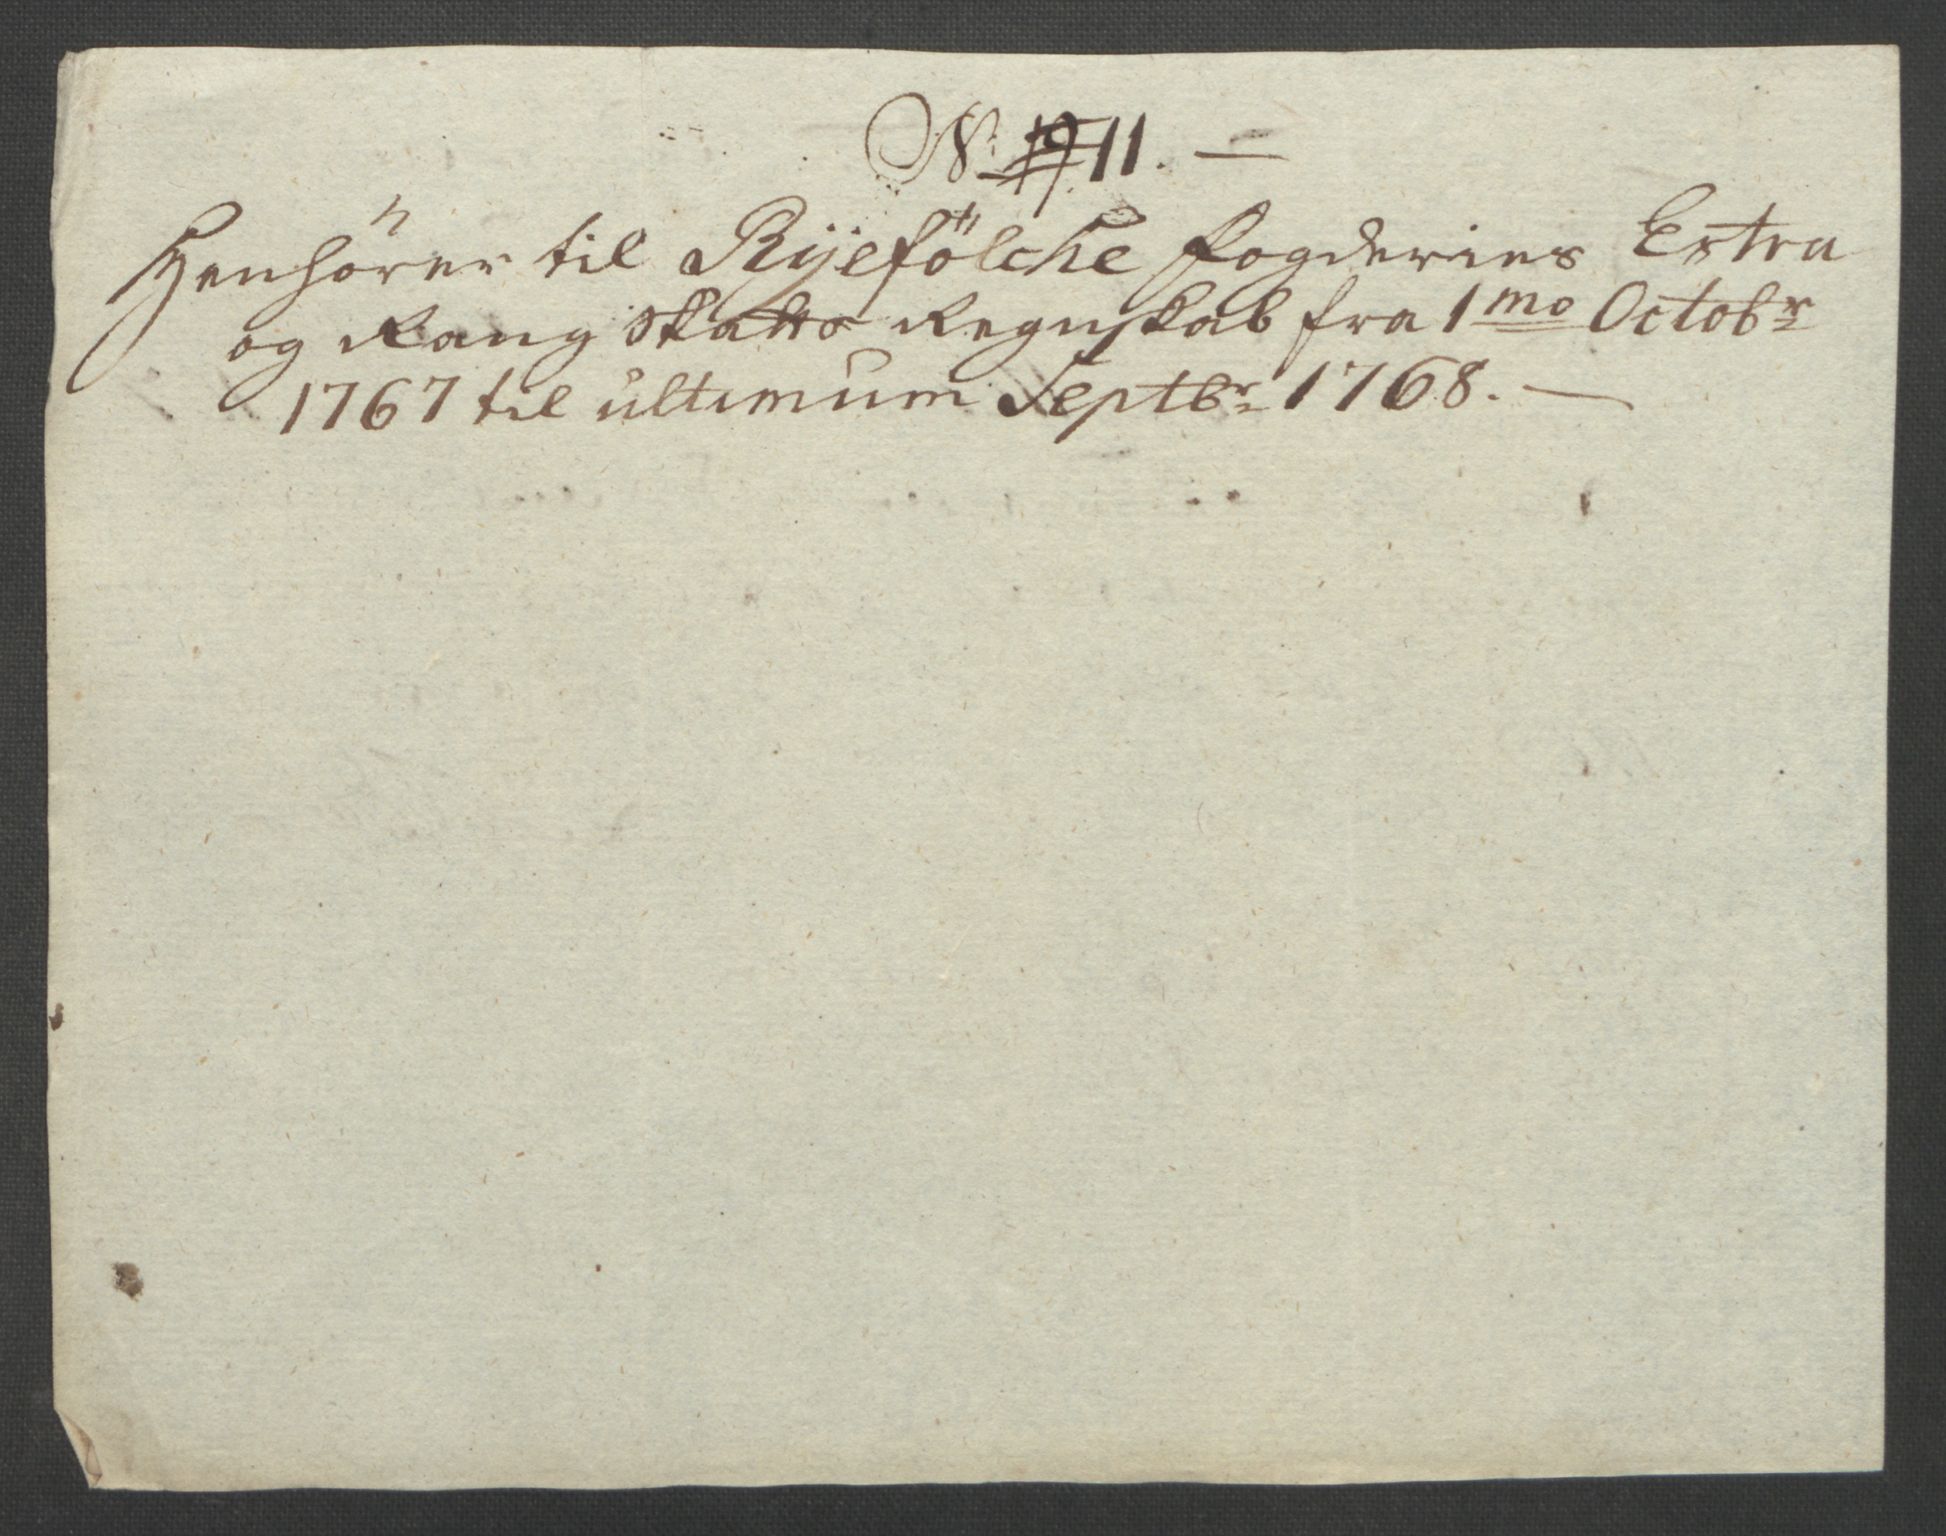 No 11. —
Henhörer til Ryefölche fogderies Extra
og Rang Skatts Regnskab fra 1mo Octobr
1767 til ultimum Septbr 1768. —